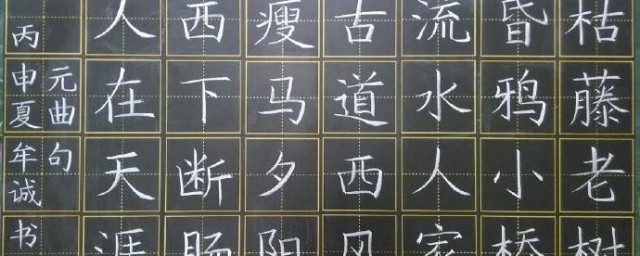 枯藤老树
昏鸦小桥
流水人家
古道西风
瘦马夕阳
西下断肠
人在天涯
元曲句
丙申夏牟诚书